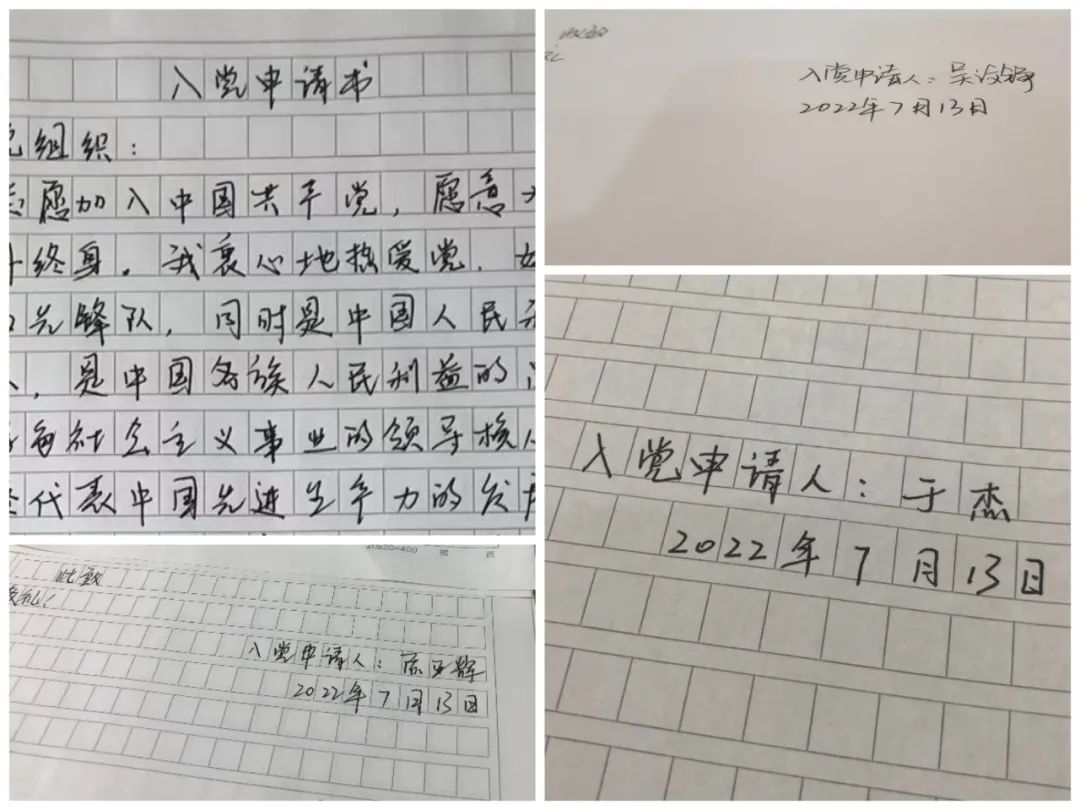 入党申请书
党组织：
志愿加入中国共产党，愿意
终身。我衷心地热爱党.
先锋队，同时是中国人民
是中国各族人民利益的
社会主义事业的领导核心
代表中国先进生产力的发
此致
入党申请人：
2022年7月13日
入党申请人：于杰
2022年7月13日
20×20=400 班 页
此致
敬礼！
入党申请人：
2022年7月13日